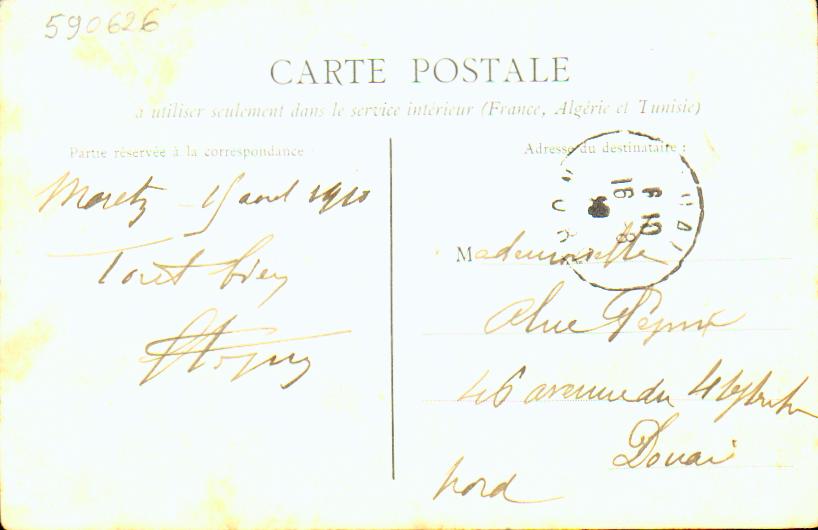 590626
CARTE POSTALE
à utiliser seulement dans le service intérieur (France, Algérie et Tunisie)
Partie réservée à la correspondance
Adresse du destinataire :
Moretz - 15 aout 1910
Tout bien
Mademoiselle
46 avenue du 4 7bre
Douai
Nord